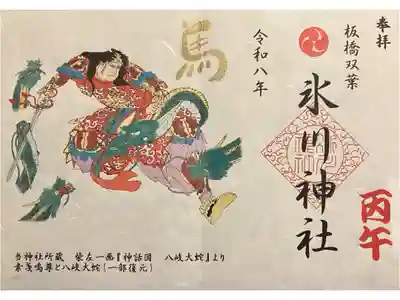 奉拝
板橋双葉
氷川神社
丙午
令和八年
馬
当神社所蔵 柴左一画『神話図 八岐大蛇』より
素戔嗚尊と八岐大蛇(一部復元)